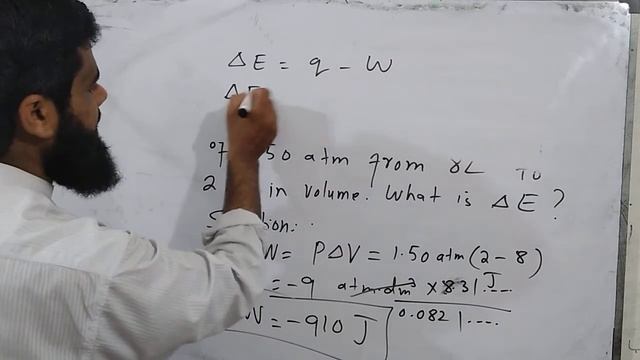 ΔE = q - W
ΔE
of 50 atm from 8L TO
2 in volume. What is ΔE ?
W = PΔV = 1.50 atm (2 - 8)
= -9 atm dm³ × 8.31 J....
0.0821....
W = -910 J